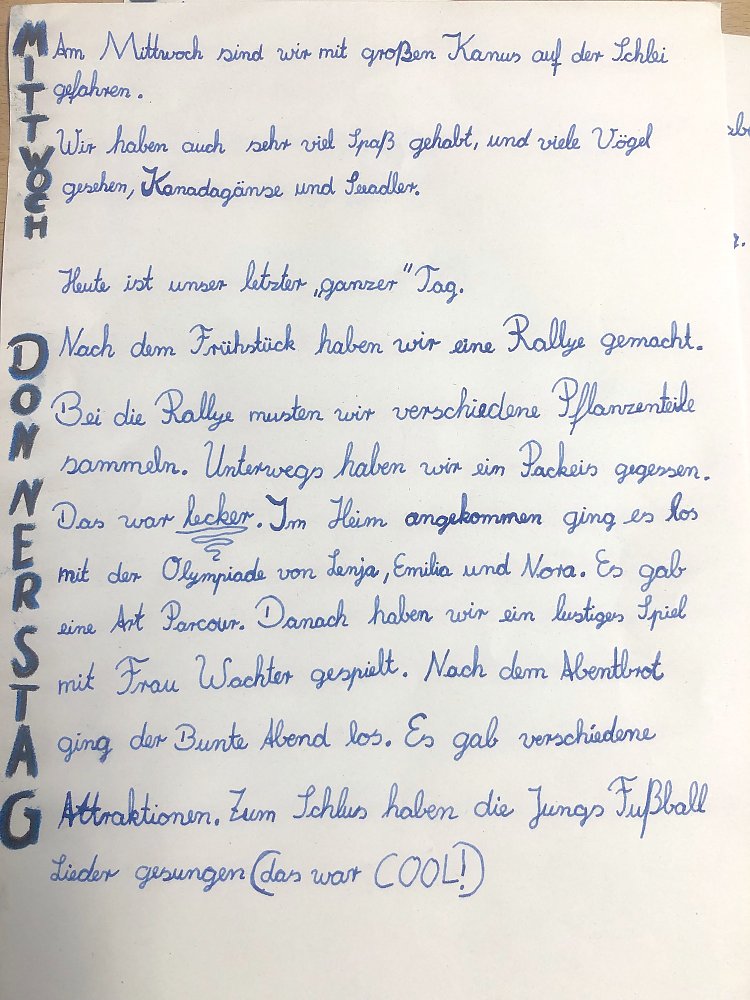 MITTWOCH
Am Mittwoch sind wir mit großen Kanus auf der Schlei
gefahren.
Wir haben auch sehr viel Spaß gehabt, und viele Vögel
gesehen, Kanadagänse und Seeadler.
DONNERSTAG
Heute ist unser letzter „ganzer" Tag.
Nach dem Frühstück haben wir eine Rallye gemacht.
Bei die Rallye musten wir verschiedene Pflanzenteile
sammeln. Unterwegs haben wir ein Packeis gegessen.
Das war lecker. Im Heim angekommen ging es los
mit der Olympiade von Lenja, Emilia und Nora. Es gab
eine Art Parcour. Danach haben wir ein lustiges Spiel
mit Frau Wachter gespielt. Nach dem Abentbrot
ging der Bunte Abend los. Es gab verschiedene
Attraktionen. Zum Schlus haben die Jungs Fußball
Lieder gesungen (das war COOL!)